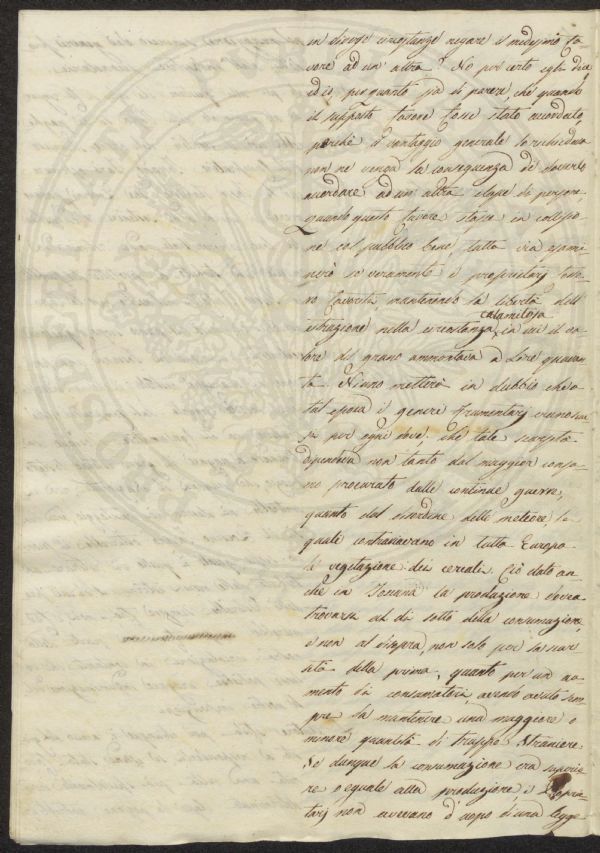 in diverse circostanze negare il medesimo fa
vore ad un' altra? No per certo egli dirà
ed io per quanto sia di parere, che quando
il supposto favore fosse stato accordato,
perchè il vantaggio generale lo richiedeva
non ne venga la conseguenza di doverlo
accordare ad un' altra classe di persone,
quando questo favore stasse in collisio
ne col pubblico bene, tutta via esami
nerò se veramente i proprietarj fosse
ro favoriti mantenendo la libertà dell'
estrazione, nella circostanza calamitosa in cui il va
lore del grano ammontava a Lire quaran
ta. Niuno metterà in dubbio che a
tal epoca i generi frumentarj erano scar
si per ogni dove; che tale scarsità
dipendeva non tanto dal maggior consu
mo procurato dalle continue guerre,
quanto dal disordine delle meteore le
quali contrariavano in tutta Europa
la vegetazione dei cereali. Ciò dato an
che in Toscana la produzione dovea
trovarsi al di sotto della consumazione,
e non al disopra, non solo per la scar
sità della prima, quanto per un au
mento di consumatori, avendo avuto sem
pre da mantenere una maggiore o
minore quantità di truppe straniere.
Se dunque la consumazione era superio
re o eguale alla produzione, i Proprie
tarj non avevano d'uopo d'una legge